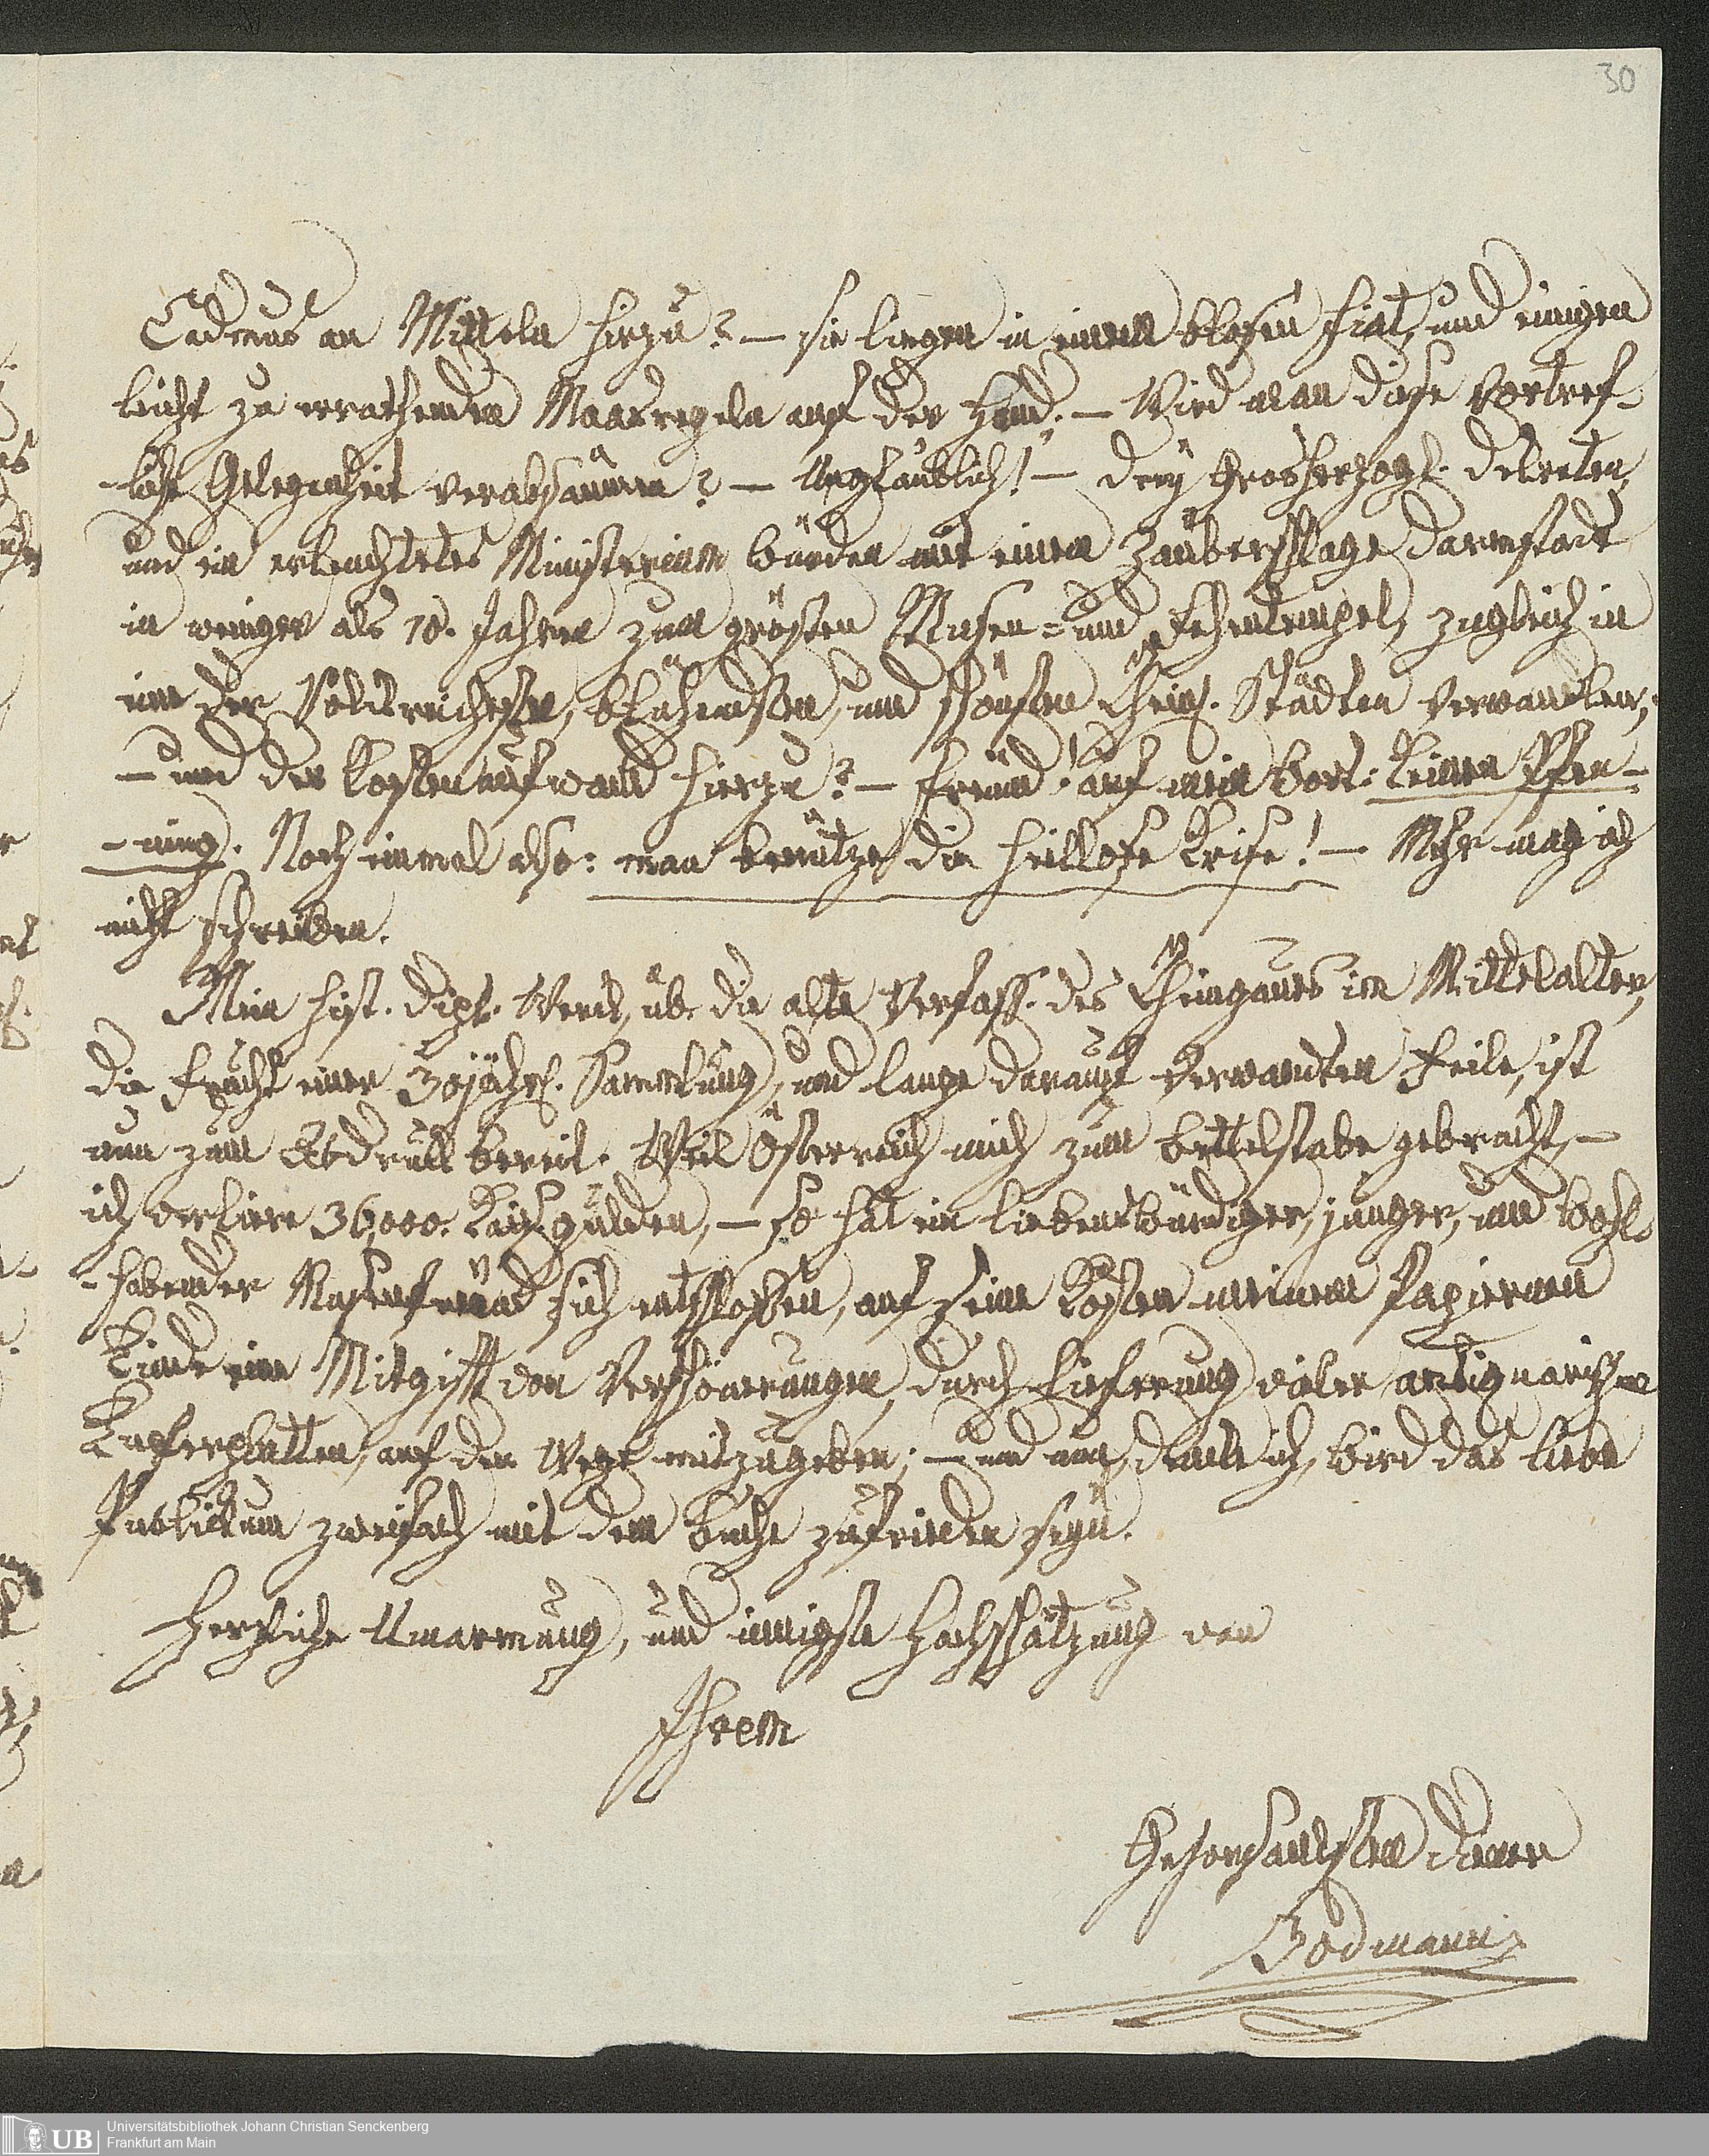 30
Cadmus an Mitteln hiezu? — sie liegen in einem blosen fiat, und einigen
leicht zu errathenden Maasregeln auf der Hand. — Wird man diese vortref-
liche Gelegenheit verabsäumen? — Unglaublich! — Drey Grosherzogl. Dekreten,
und ein erleuchtetes Ministerium würden mit einem Zauberschlage Darmstadt
in weniger als 10. Jahren zum grösten Musen- und Fehentempel, zugleich in
eine der Volkreichesten, blühendsten, und schönsten Rhein. Städten verwandlen;
— und der Kostenaufwand hierzu? — Freund! auf mein Wort: keinen Pfen-
-ning. Noch einmal also: man benütze die heillose Krise! — Mehr mag ich
nicht schreiben.
Mein hist. dipl. Werk, üb. die alte Verfass. des Rheingaues im Mittelalter,
die Frucht einer 30jähr. Sammlung, und lange darauf verwandten Feile, ist
nun zum Abdruck bereit. Weil Österreich mich zum Bettelstabe gebracht, —
ich verliere 36,000. Kays. gulden, — so hat ein liebenswürdiger, junger, und wohl-
-habender Musenfreund sich entschlossen, auf seine Kosten meinem Papiernen
Kinde eine Mitgift von Verschönerungen, durch Lieferung vieler antiquarischen
Kupferplatten, auf den Wege mitzugeben; — und nun, denke ich, wird das liebe
Publikum zweifach mit dem Buche zufrieden seyn.
Herzliche Umarmung, und innigste Hochschätzung von
Ihrem
Gehorsamsten Diener
Bodmann
UB
Universitätsbibliothek Johann Christian Senckenberg
Frankfurt am Main